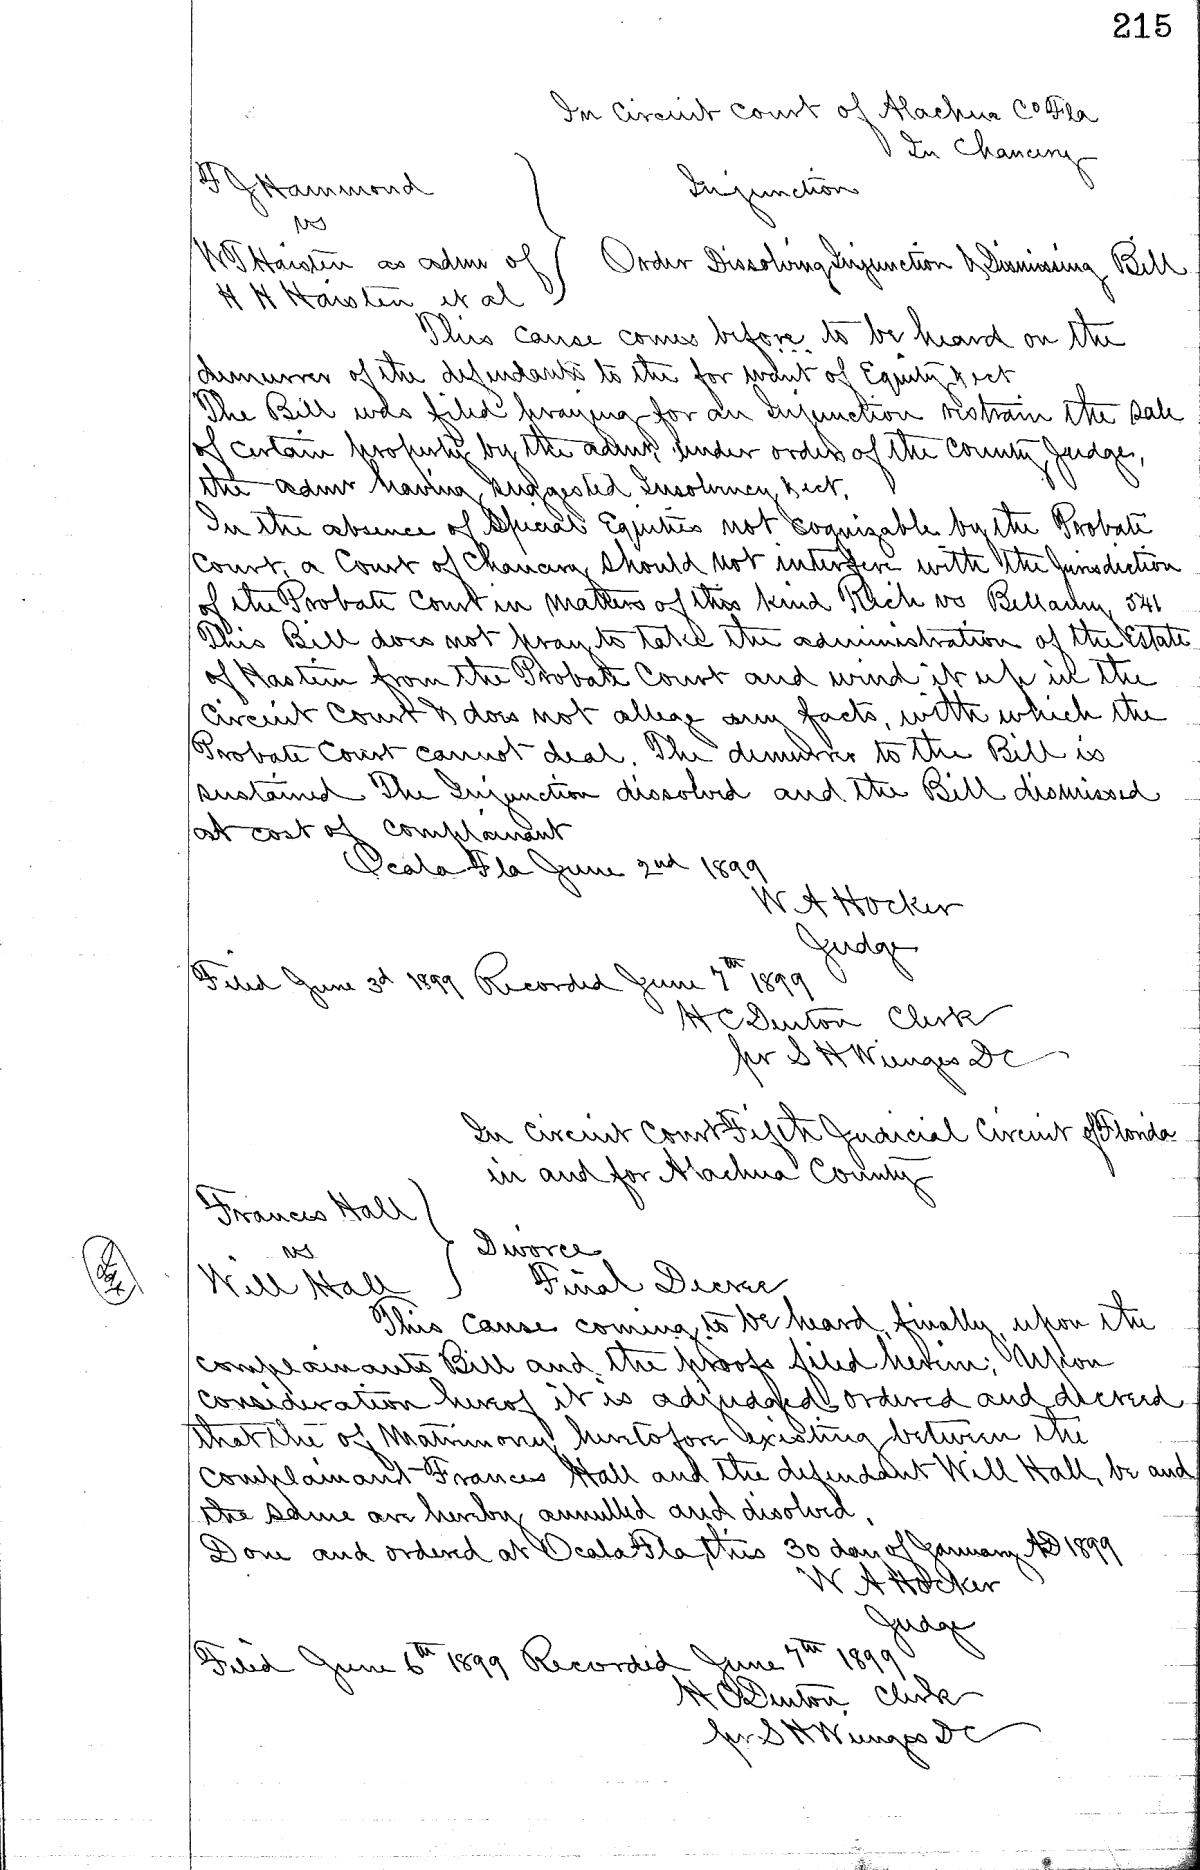 215
In Circuit Court of Alachua Co Fla
In Chancery
F J Hammond
vs
W T Haisten as admr of
H H Haisten et al
Injunction
Order Dissolving Injunction & Dismissing Bill
This cause comes before to be heard on the
demurrer of the defendants to the for want of Equity & ect
The Bill was filed praying for an Injunction restrain the sale
of certain property by the admr under orders of the County Judge,
the admr having suggested Insolvency & ect.
In the absence of Special Equities not cognizable by the Probate
Court, a Court of Chancery should not interfere with the Jurisdiction
of the Probate Court in matters of this kind Rich vs Bellamy 541
This Bill does not pray to take the administration of the Estate
of Hastein from the Probate Court and wind it up in the
Circuit Court & does not allege any facts, with which the
Probate Court cannot deal. The demurrer to the Bill is
sustained The Injunction dissolved and the Bill dismissed
at cost of complainant
Ocala Fla June 2nd 1899
W A Hocker
Judge
Filed June 3d 1899 Recorded June 7th 1899
H C Denton Clerk
per S H Wienges DC
In Circuit Court Fifth Judicial Circuit of Florida
in and for Alachua County
Frances Hall
vs
Will Hall
Divorce
Final Decree
This cause coming to be heard, finally, upon the
complainants Bill and the proofs filed herein; Upon
consideration hereof it is adjudged ordered and decreed
that the of Matrimony heretofore existing between the
complainant Frances Hall and the defendant Will Hall, be and
the same are hereby annulled and disolved.
Done and ordered at Ocala Fla, this 30 day of January AD 1899
W A Hocker
Judge
Filed June 6th 1899 Recorded June 7th 1899
H C Denton Clerk
per S H Wienges DC